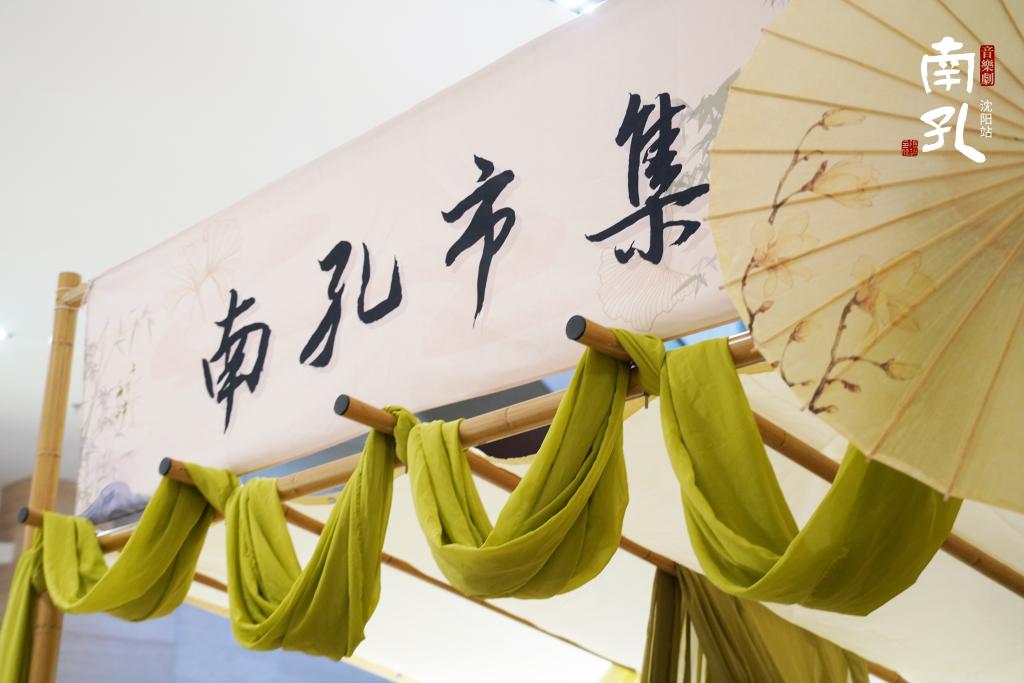 南孔市集
音樂劇
南孔
沈阳站